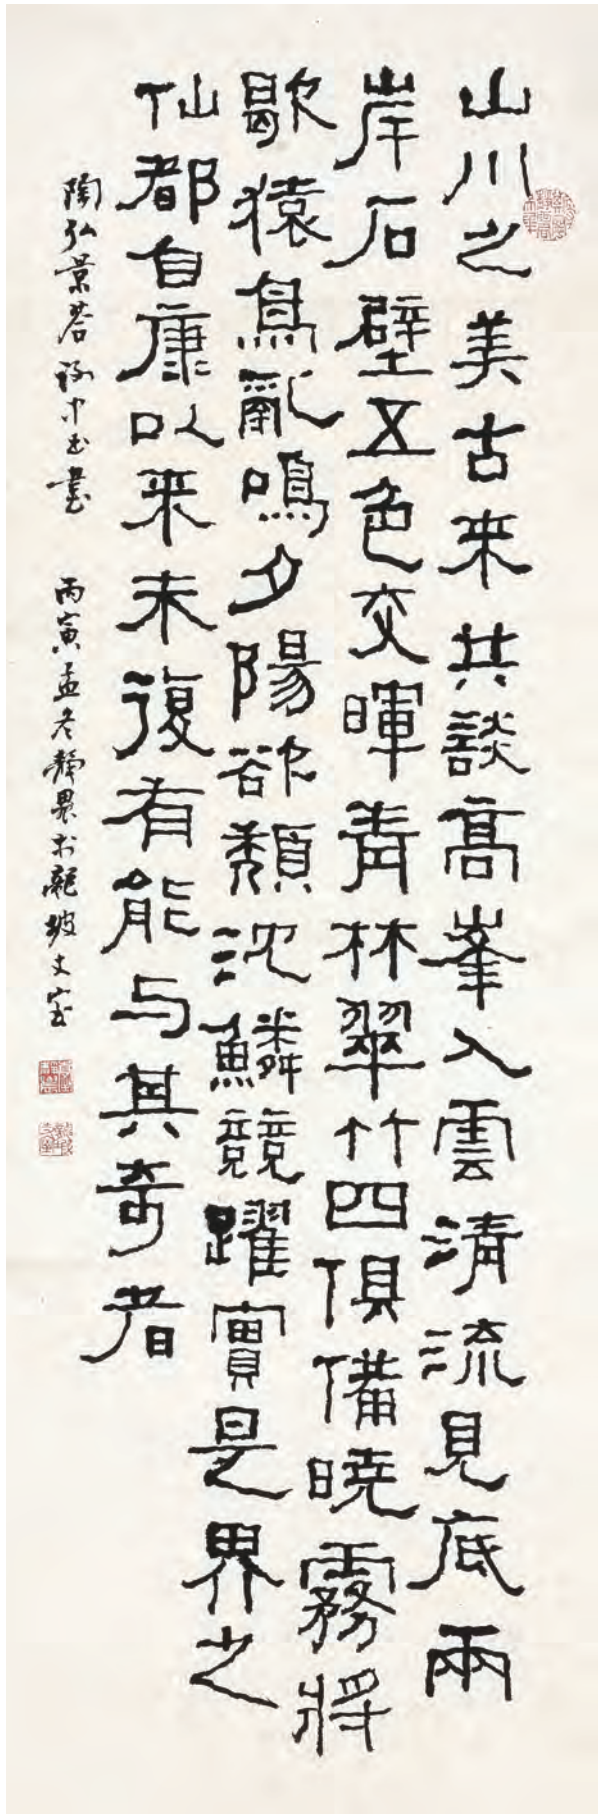 山川之美古来共談高峯入雲清流見底兩
岸石壁五色交暉青林翠竹四俱備曉霧將
歇猿鳥亂鳴夕陽欲頹沈鱗競躍實是界之
仙都自康以来未復有能与其奇者
陶弘景荅謝中書書 丙寅孟冬靜農於龍坡丈室